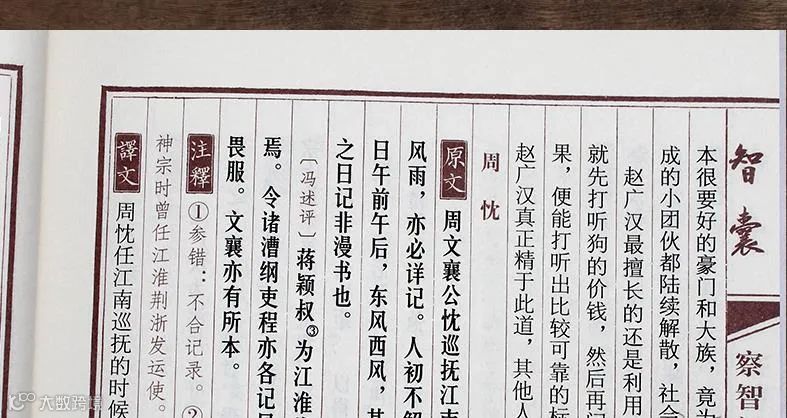 智囊
察智
本很要好的豪门和大族，竟为
成的小团伙都陆续解散，社会
赵广汉最擅长的还是利用
就先打听狗的价钱，然后再问
果，便能打听出比较可靠的标
赵广汉真正精于此道，其他人
周忱
原文 周文襄公忱巡抚江南
风雨，亦必详记。人初不解
日午前午后，东风西风，其
之日记非漫书也。
〔冯述评〕蒋颖叔③为江淮
焉。令诸漕纲吏程亦各记风
畏服。文襄亦有所本。
注释 ①参错：不合记录。②
神宗时曾任江淮荆浙发运使。
譯文 周忱任江南巡抚的时候
大数跨境